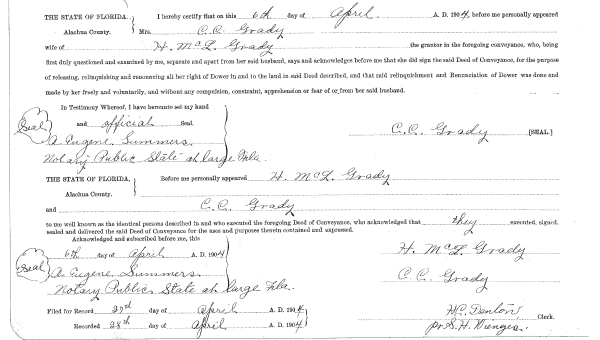 THE STATE OF FLORIDA, } I hereby certify that on this 6th day of April A. D. 1904, before me personally appeared
Alachua County. Mrs. C.C. Grady
wife of H. McL Grady the grantor in the foregoing conveyance, who, being
first duly questioned and examined by me, separate and apart from her said husband, says and acknowledges before me that she did sign the said Deed of Conveyance, for the purpose
of releasing, relinquishing and renouncing all her right of Dower in and to the land in said Deed described, and that said relinquishment and Renunciation of Dower was done and
made by her freely and voluntarily, and without any compulsion, constraint, apprehension or fear of or from her said husband.
In Testimony Whereof, I have hereunto set my hand
Seal and official Seal. C.C. Grady [SEAL]
A Eugene Summers
Notary Public State at large Fla.
THE STATE OF FLORIDA, } Before me personally appeared H. McL Grady
Alachua County.
and C.C. Grady
to me well known as the identical persons described in and who executed the foregoing Deed of Conveyance, who acknowledged that they executed, signed,
sealed and delivered the said Deed of Conveyance for the uses and purposes therein contained and expressed.
Acknowledged and subscribed before me, this
6th day of April A. D. 1904 H. McL Grady
Seal A. Eugene Summers C.C. Grady
Notary Public State at large Fla.
Filed for Record 27th day of April A. D. 1904 H.C. Denton Clerk.
Recorded 28th day of April A. D. 1904 pr S.H. Wienges